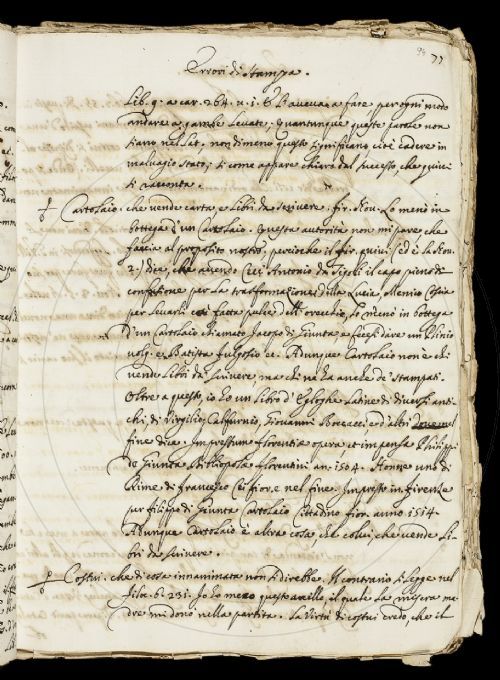 93 77
Errori di stampa.
Lib. 9. a car. 264. u. i. E Bauevua a fare per ogni modo
andare a gambe leuate, quantunque queste parole non
siano nel Lat. nondimeno questo significano cioè cadere in
maluagio stato; si come appare chiaro dal successo, che quiui
si racconta.
Cartolaio. che uende carta, e libri da scriuere. fir. Nou. lo menò in
bottega d'un Cartolaio. Questa autorità non mi pare che
faccia al proposito nostro, perciochè il fir. quiui (ed è la Nou.
2.) dice, che auendo Ser Antonio da Tipoli il capo pieno di
confusione per la trasformazione della Lucia, Menico Cosia
per leuarli così fatta pulce d'orecchio, lo menò in bottega
d'un Cartolaio chiamato Jacopo di Giunta, e fecesi dare un Plinio
uolg. e Batista fulgosio ec. Adunque Cartolaio non è chi
uende libri da scriuere, ma chi ne ha anche de' stampati.
Oltre a questo, io ho un libro d'Egloghe latine di diuersi anti-
chi, di Virgilio, Calfurnio, Giouanni Boccacci, ed altri doue nel
fine dice. Impressum florentiae opera, et impensa Philippi
de Giunta Bibliopolae florentini an. 1504. Honne uno di
Rime di francesco Cei fior. e nel fine. Impresso in firenze
per filippo di Giunta Cartolaio Cittadino fior. anno 1514.
Adunque Cartolaio è altra cosa che colui, che uende li-
bri da scriuere.
Costui. che di cosa innanimata non si direbbe. Il contrario si legge nel
filoc. 6. 231. Io ho meco questo anello, il quale la misera ma-
dre mi donò nella partita. la uirtù di costui credo, che il